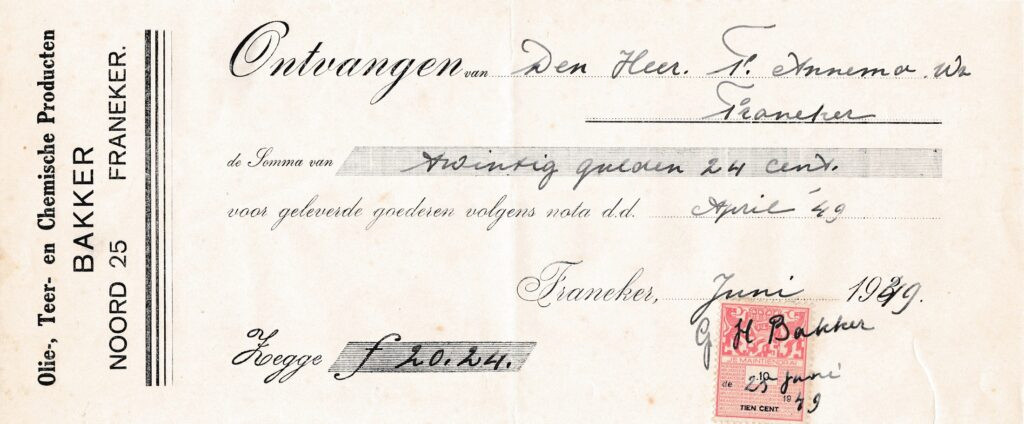 Olie-, Teer- en Chemische Producten
BAKKER
NOORD 25 FRANEKER.
Ontvangen van Den Heer. T. Annema. Wz
Franeker
de Somma van twintig gulden 24 cent.
voor geleverde goederen volgens nota d.d. April '49
Franeker, Juni 1949.
G H Bakker
Zegge f 20.24.
JE MAINTIENDRAI
10
de 23 juni
1949
TIEN CENT